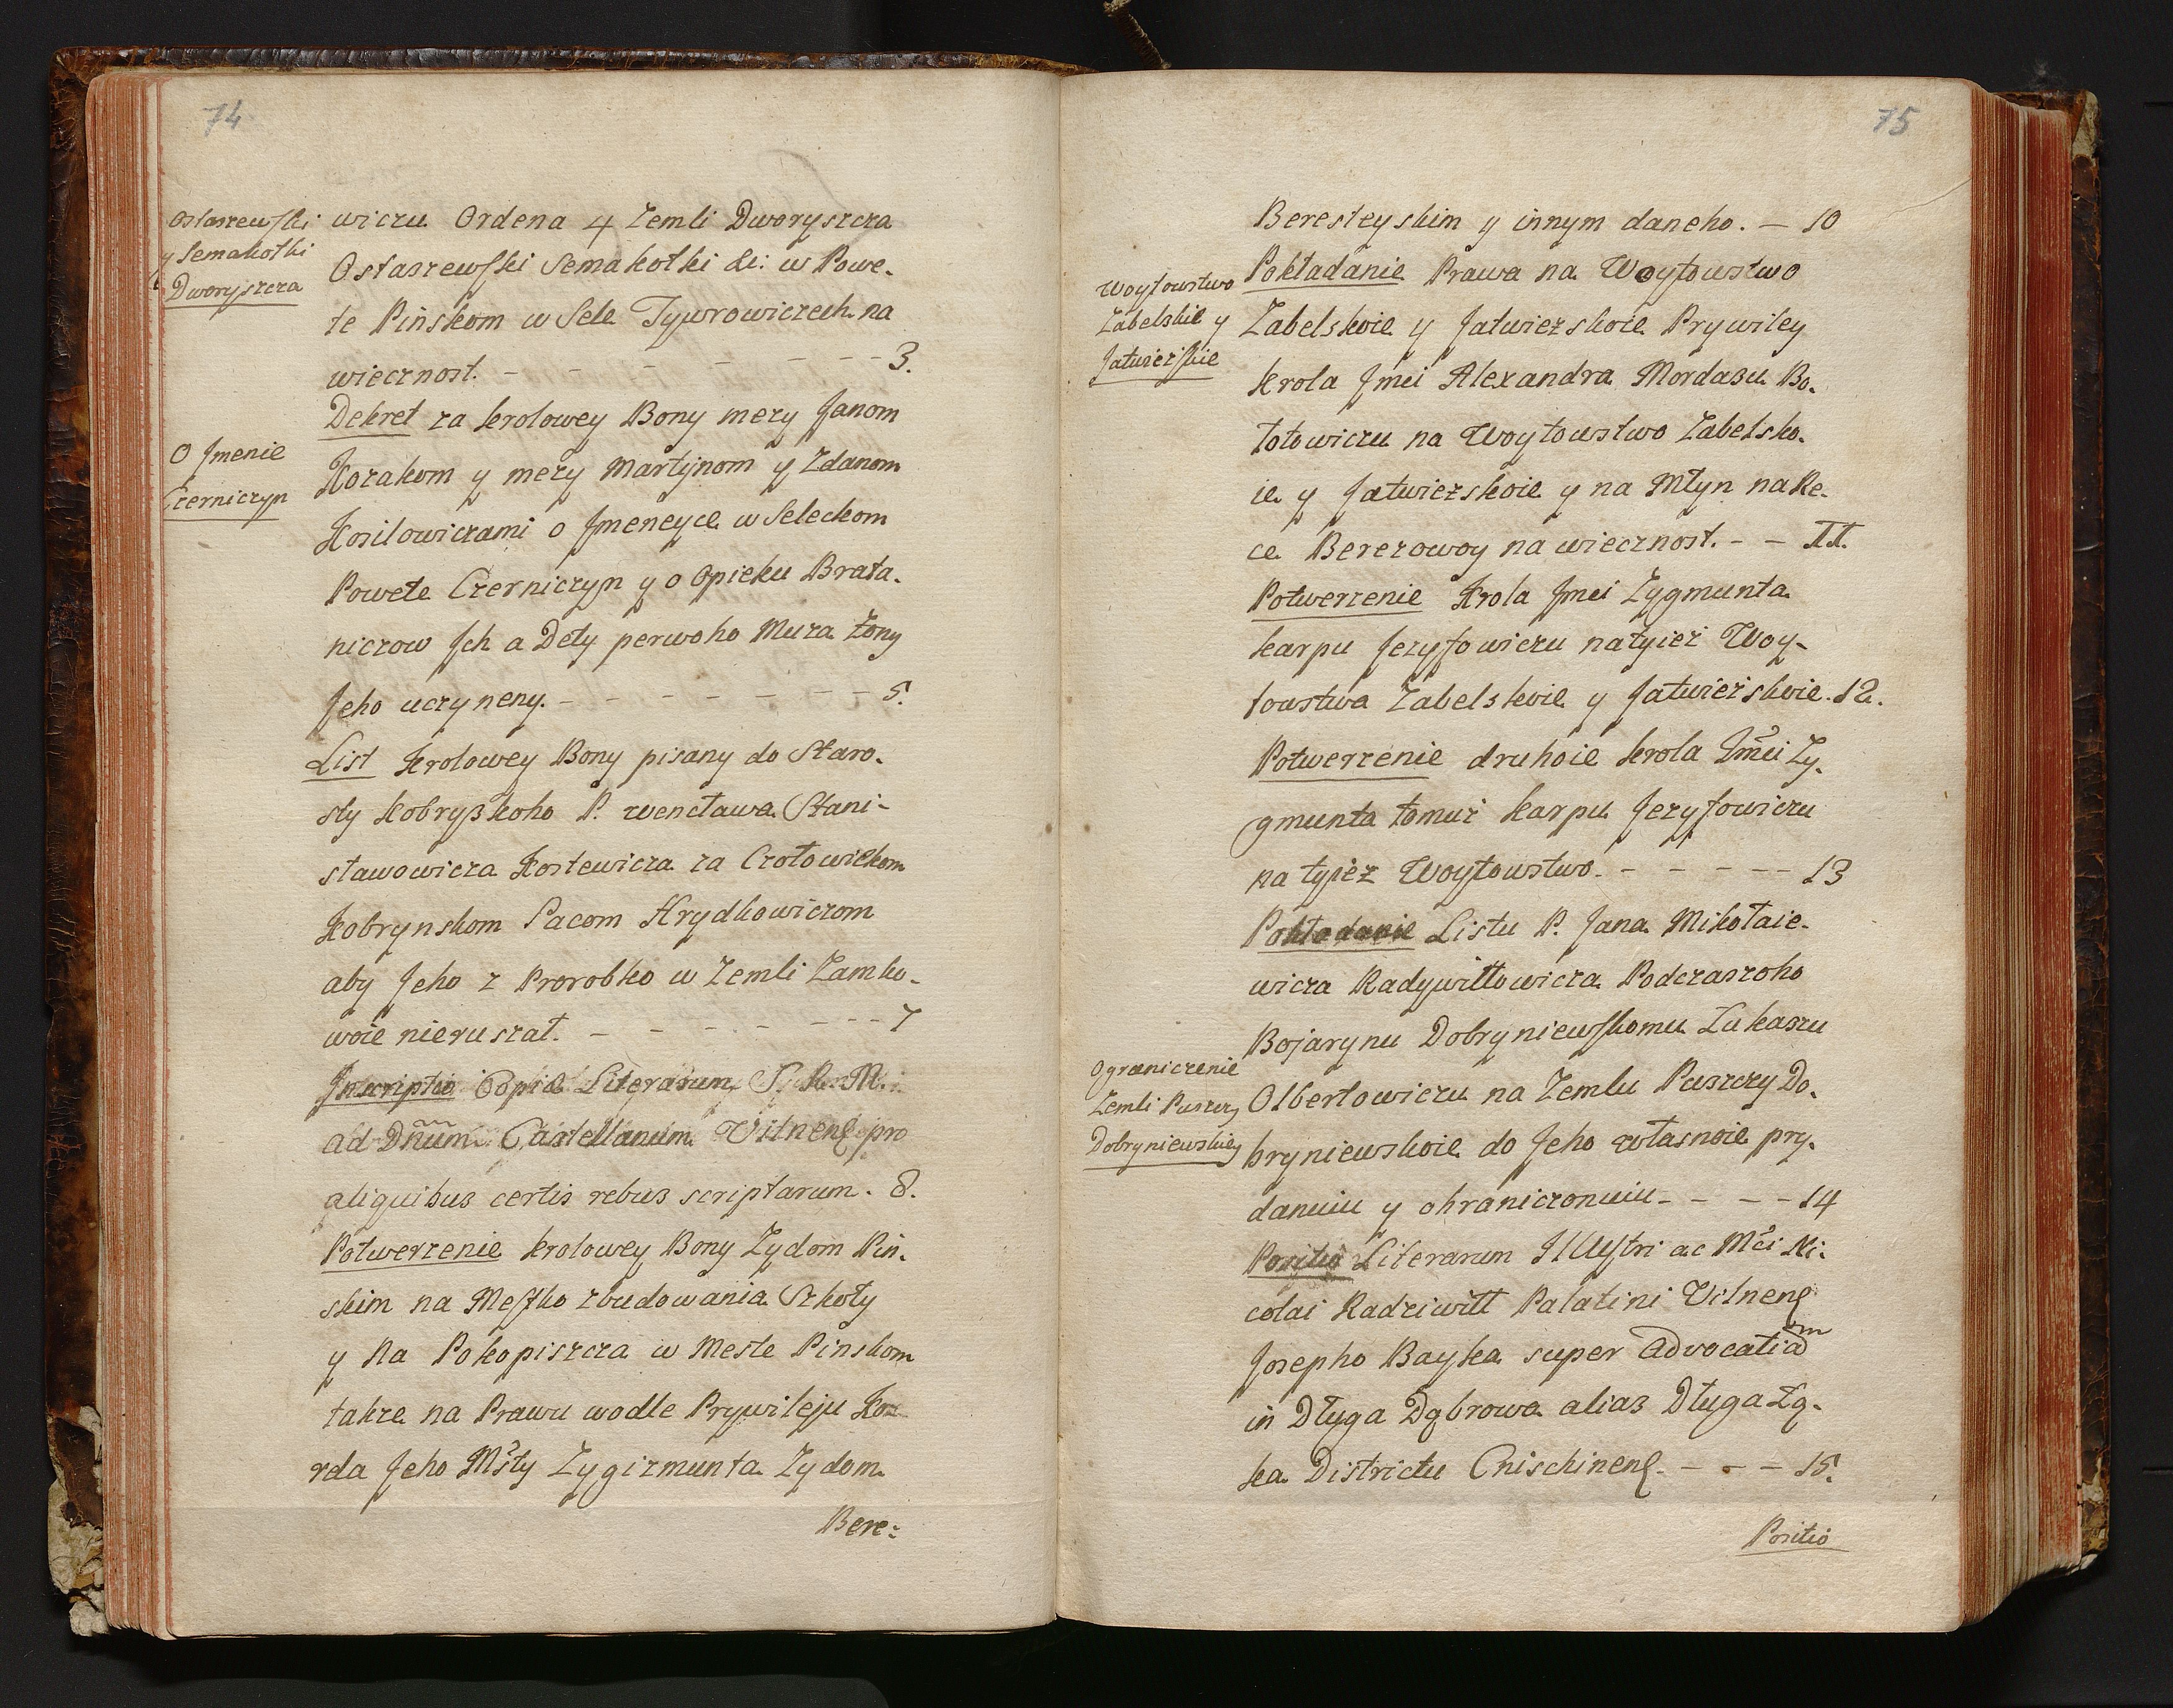 74
Ostaszewski
y Semakotki
Dworyszcza
wiczu Ordena 4 Zemli Dworyszcza
Ostaszewski Semakotki &: w Powe-
te Pińskom w Sele Typurowiczech na
wiecznost. - - - - - - - 3.
Dekret za krolowey Bony mezy Janom
O Jmenie
Czerniczyn
Kozakom y mezy Martynom y Zdanom
Kosilowiczami o Jmeneyce w Seleckom
Powete Czerniczyn y o Opieku Brata-
niczow Jch a Dety perwoho Muza Zony
Jeho uczyneny. - - - - - - - 5.
List Krolowey Bony pisany do Staro-
sty Kobryßkoho P. wencława Stani-
sławowicza Kostewicza za Czołowiekom
Kobrynskom Pacom Hrydkowiczom
aby Jeho z Prorobko w Zemli Zamko-
woie nieruszał. - - - - - - - 7
Inscriptio Copia Literarum S. R. M.
ad Dñum Castellanum Vilnens pro
aliquibus certis rebus scriptarum. 8.
Potwerzenie krolowey Bony Zydom Pin-
skim na Mestko zbudowania Szkoły
y na Pokopiszcza w Meste Pinskom
takze na Prawu wodle Prywileju Ko-
rola Jeho Msty Zygizmunta Zydom
Bere:
75
Beresteyskim y innym daneho. - 10
Woytowstwo
Zabelskie y
Jatwiezskie
Pokładanie Prawa na Woytowstwo
Zabelskoie y Jatwiezskoie Prywiley
krola Jmci Alexandra Mordasu Bo-
łotowiczu na Woytowstwo Zabelsko-
ie y Jatwiezskoie y na Młyn na Re-
ce Berezowoy na wiecznost. - - 11.
Potwerzenie Krola Jmci Zygmunta
karpu Jezyfowiczu na tyież Woy-
towstwa Zabelskoie y Jatwieżskoie. 12.
Potwerzenie druhoie krola Jmci Zy-
gmunta tomuż karpu Jezyfowiczu
na tyież Woytowstwo. - - - - - 13
Pokładanie Listu P. Jana Mikołaie-
wicza Radywiłłowicza Podczaszoho
Bojarynu Dobryniewskomu Łukaszu
Ograniczenie
Zemli Puszczy
Dobryniewskiey
Olbertowiczu na Zemlu Puszczy Do-
bryniewskoie do Jeho własnoie pry-
danuiu y ohraniczonuiu - - - - 14
Positio Literarum Illustri ac Mci Ni-
colai Radziwiłł Palatini Vilnens
Josepho Bayka super advocatiam
in Długa Dąbrowa alias Długa Łą-
ka Districtu Cnischinens. - - - 15.
Positio